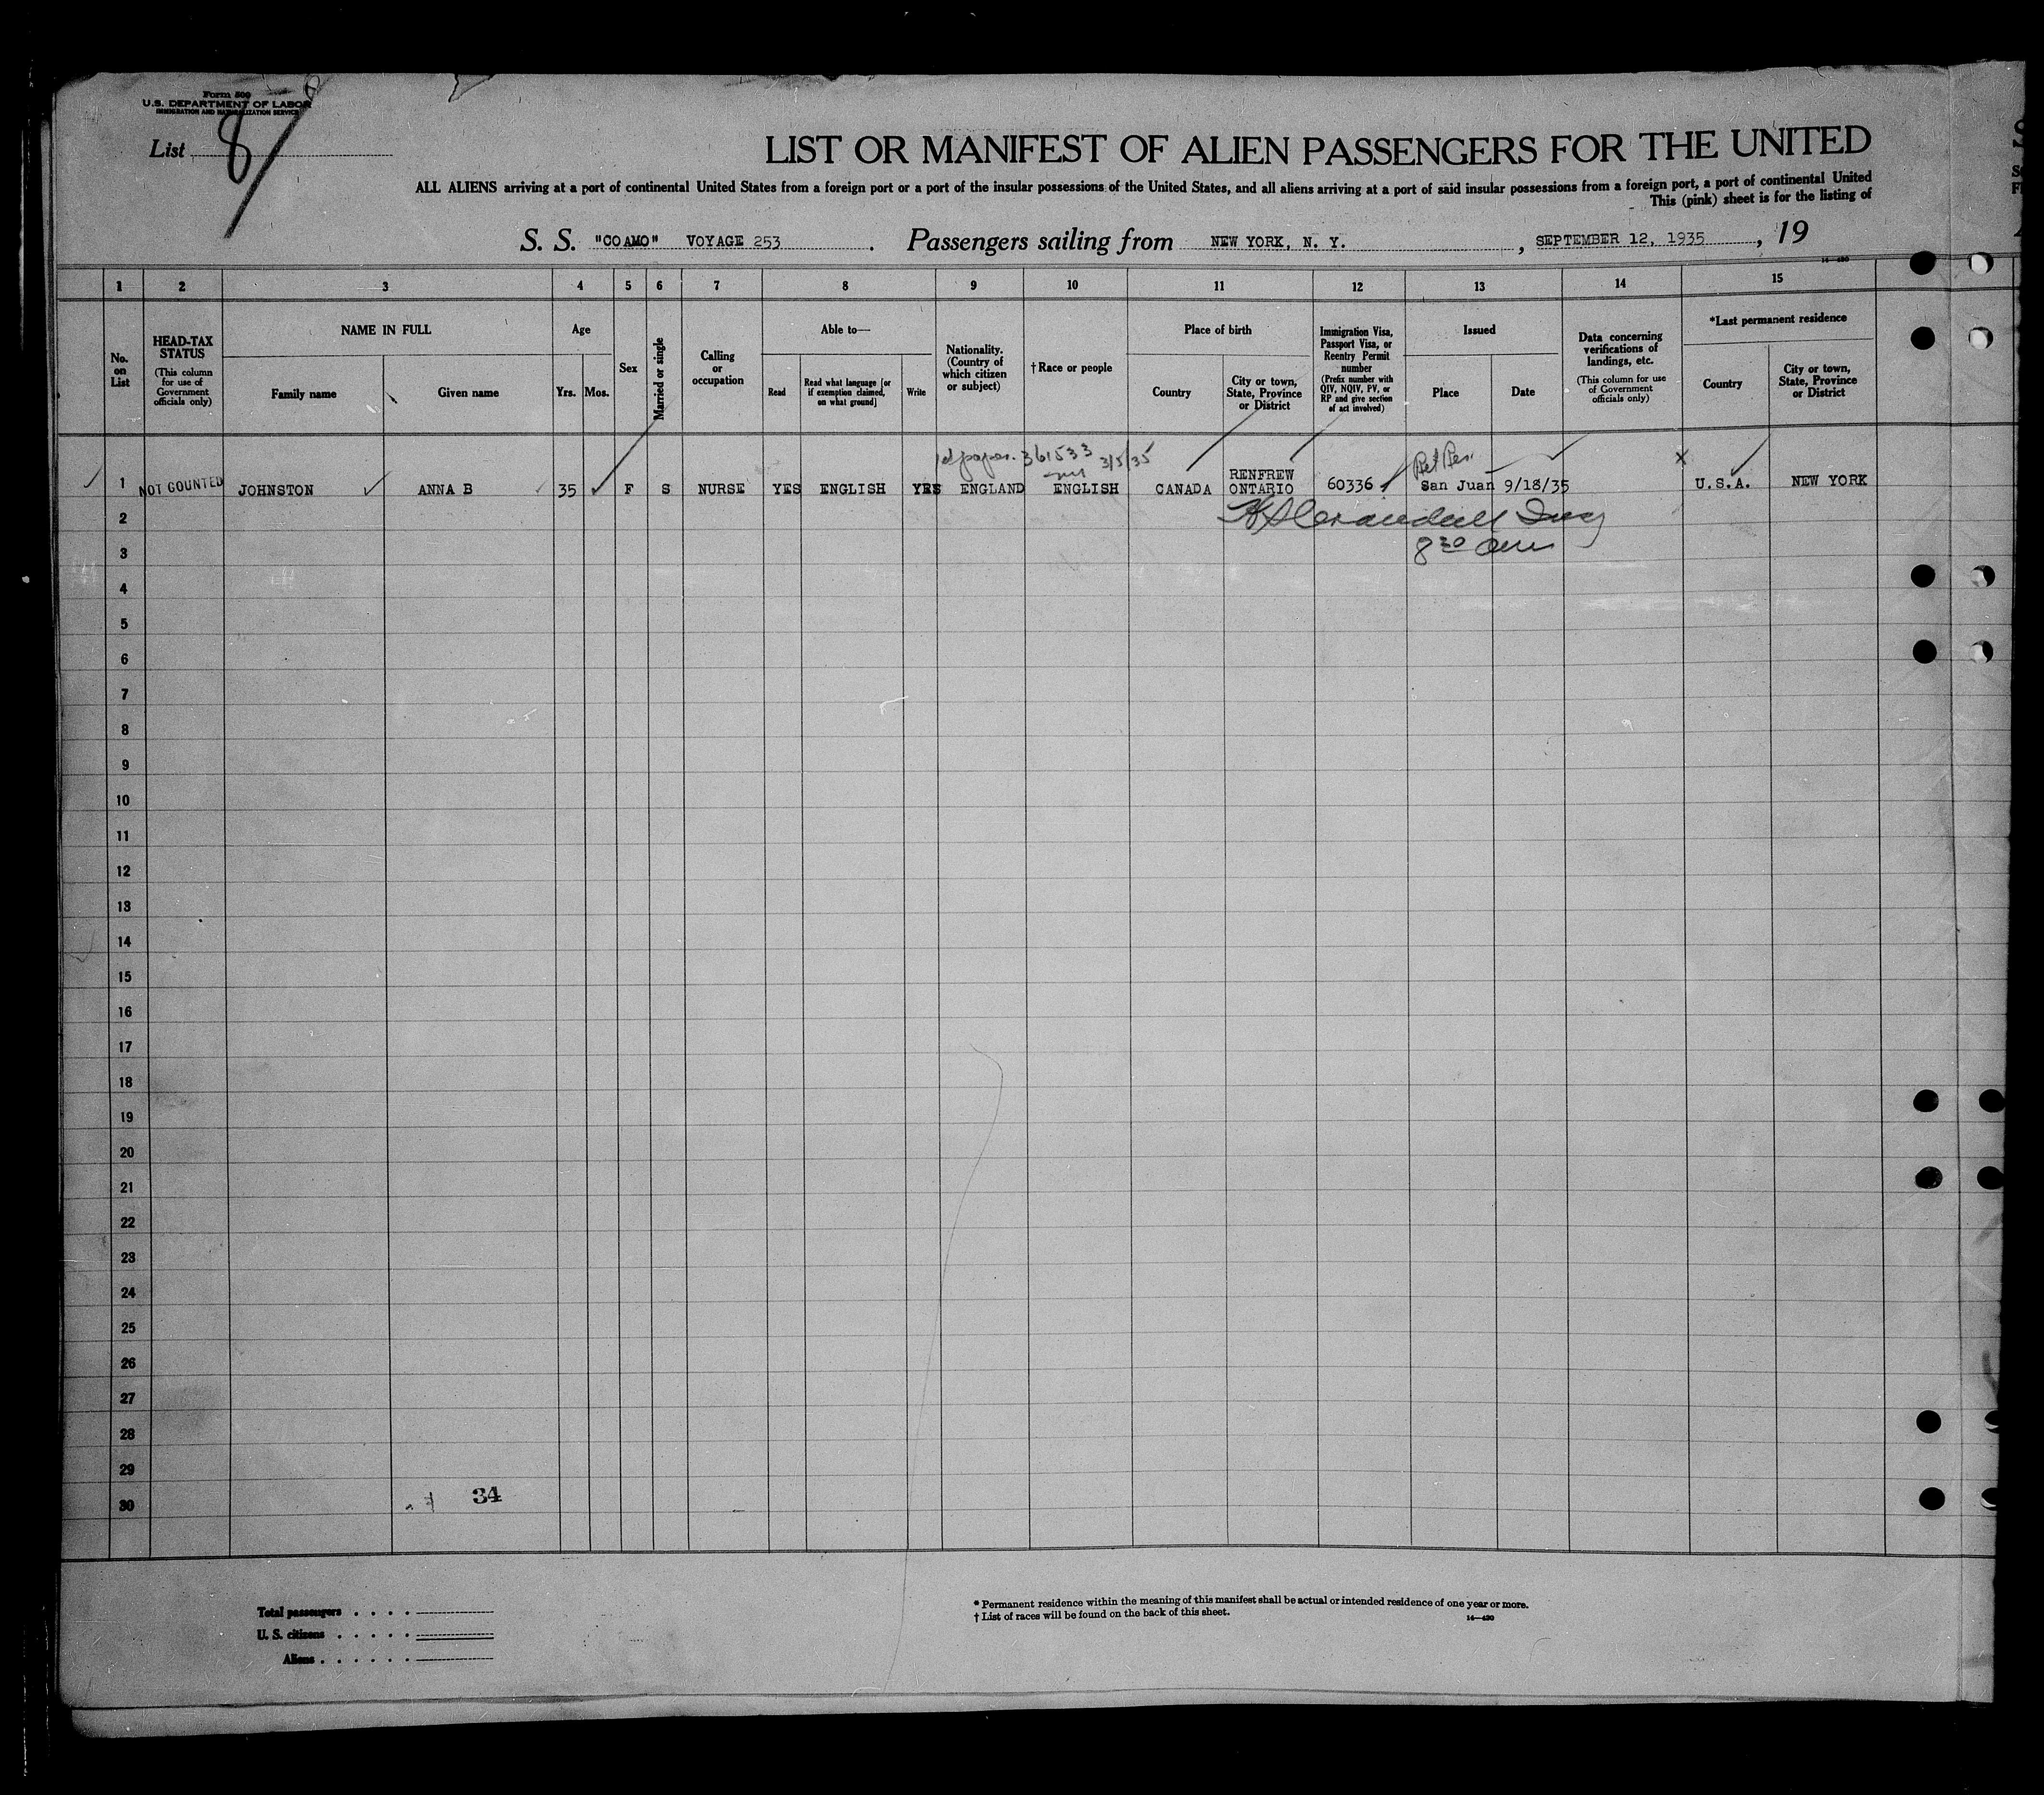 Form 500
U.S. DEPARTMENT OF LABOR
IMMIGRATION AND NATURALIZATION SERVICE
List 8
LIST OR MANIFEST OF ALIEN PASSENGERS FOR THE UNITED
ALL ALIENS arriving at a port of continental United States from a foreign port or a port of the insular possessions of the United States, and all aliens arriving at a port of said insular possessions from a foreign port, a port of continental United
This (pink) sheet is for the listing of
S. S. "COAMO" VOYAGE 253. Passengers sailing from NEW YORK, N. Y., SEPTEMBER 12, 1935, 19
1 2 3 4 5 6 7 8 9 10 11 12 13 14 15
No. on List
HEAD-TAX STATUS (This column for use of Government officials only)
NAME IN FULL
Family name
Given name
Age
Yrs. Mos.
Sex
Married or single
Calling or occupation
Able to—
Read
Read what language [or if exemption claimed, on what ground]
Write
Nationality. (Country of which citizen or subject)
†Race or people
Place of birth
Country
City or town, State, Province or District
Immigration Visa, Passport Visa, or Reentry Permit number (Prefix number with QIV, NQIV, PV, or RP and give section of act involved)
Issued
Place
Date
Data concerning verifications of landings, etc. (This column for use of Government officials only)
*Last permanent residence
Country
City or town, State, Province or District
1st paper. 361533 3/5/35
1 NOT COUNTED JOHNSTON ANNA B 35 F S NURSE YES ENGLISH YES ENGLAND ENGLISH CANADA RENFREW ONTARIO 60336 San Juan 9/18/35 x U.S.A. NEW YORK
2
3 8 30 am
4
5
6
7
8
9
10
11
12
13
14
15
16
17
18
19
20
21
22
23
24
25
26
27
28
29
30 34
Total passengers . . . .
U. S. citizens . . . . .
Aliens . . . . . .
* Permanent residence within the meaning of this manifest shall be actual or intended residence of one year or more.
† List of races will be found on the back of this sheet.
14—430